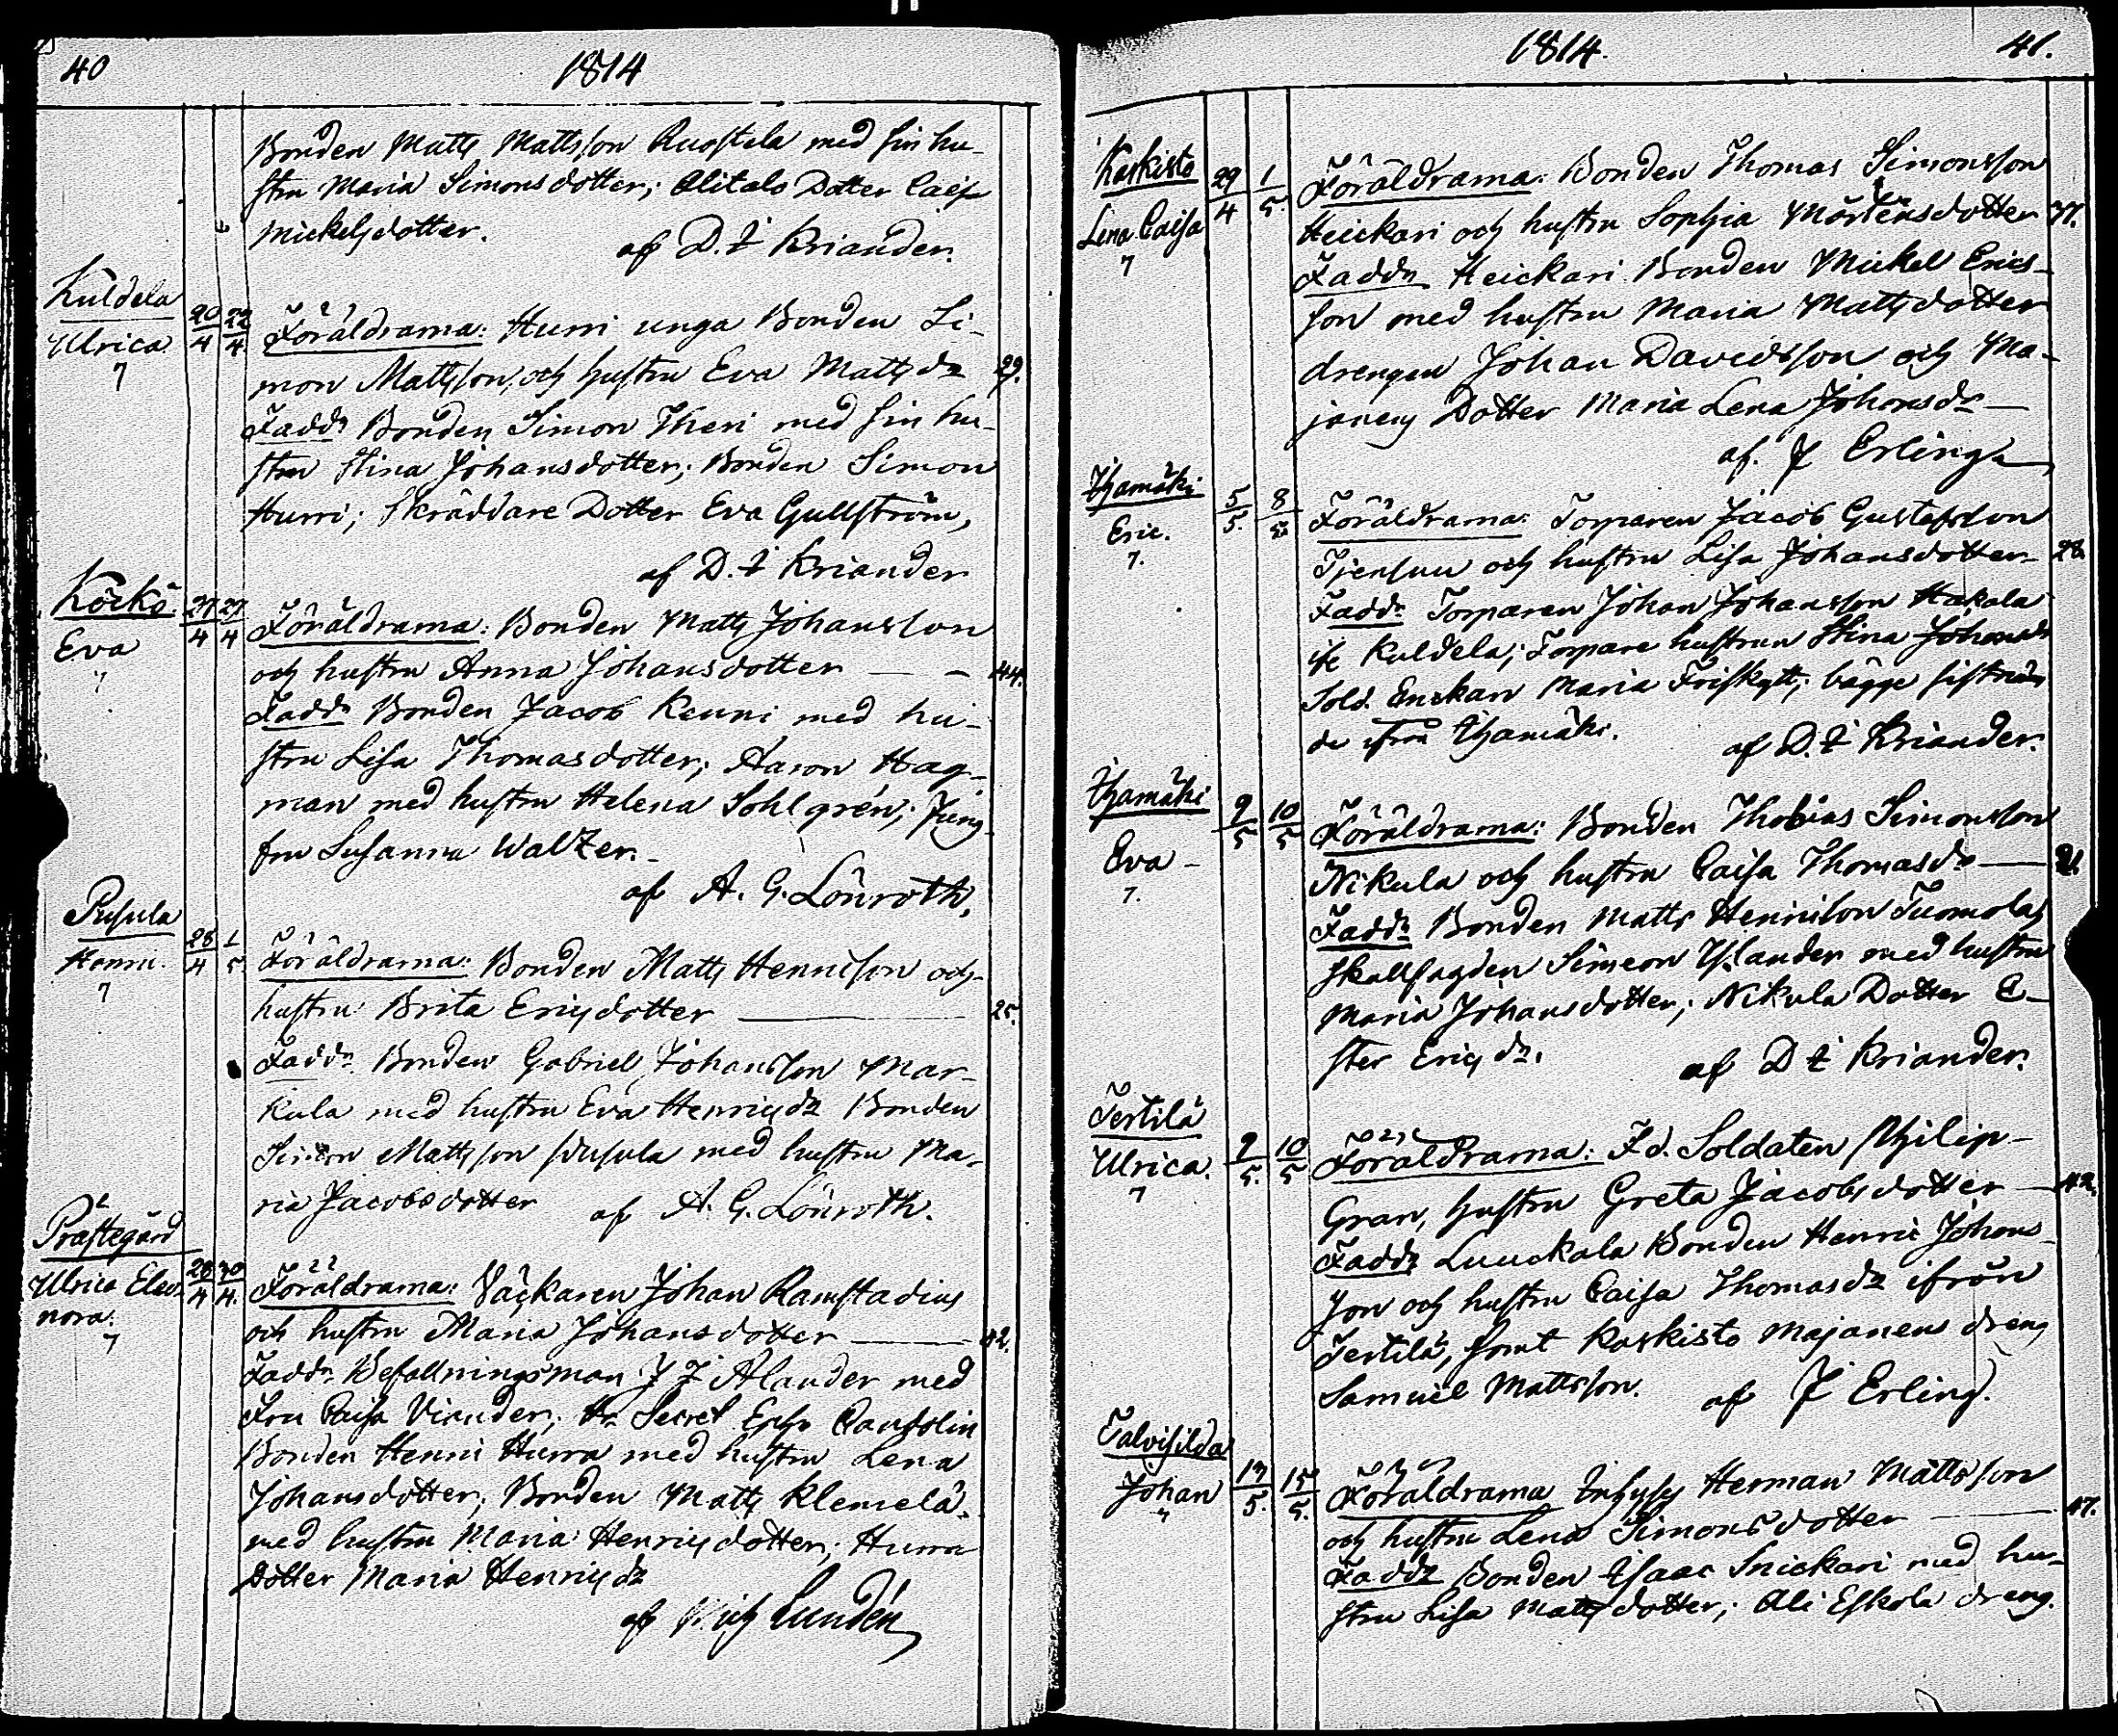 40
1814
Bonden Matts Mattsson Ruostela med sin hu-
stru Maria Simonsdotter; Alitalo Dotter Caisa
Mickelsdotter.
af D. I Kriander.
Kuldela
Ulrica
7
20/4 22/4
Föräldrarna: Hurri unga Bonden Si-
mon Mattsson, och hustru Eva Mattsdr
29.
Faddr Bonden Simon Theri med sin hu-
stru Stina Johansdotter; Bonden Simon
Hurri; Skräddare Dotter Eva Gullström,
af D. I Kriander
Köckö.
Eva
7
27/4 27/4
Föräldrarna: Bonden Matts Johansson
och hustru Anna Johansdotter — —
44.
Faddr Bonden Jacob Keuni med hu-
stru Lisa Thomasdotter; Aaron Hag-
man med hustru Helena Sohlgrén; Jung-
fru Susanna Walzer.
af A. G. Lönroth.
Pusula
Henric.
7
28/4 1/5
Föräldrarna: Bonden Matts Henricson och
hustru Brita Ericsdotter —
25.
Faddr. Bonden Gabriel Johansson Mar-
kula med hustru Eva Henricsdr Bonden
Simon Mattsson Pusula med hustru Ma-
ria Jacobsdotter
af A. G. Lönroth.
Prästegård
Ulrica Eleo-
nora.
7
28/4 30/4.
Föräldrarna: Väckaren Johan Ramstadius
och hustru Maria Johansdotter —
42.
Faddr. Befallningsman J J Alander med
Fru Caisa Viander; Hr Secret Ephr Cantolin
Bonden Henric Hurra med hustru Lena
Johansdotter; Bonden Matts Klemelä
med hustru Maria Henricsdotter; Hurra
Dotter Maria Henricsdr
af Lundén
1814.
41.
Karkisto
Lena Caisa
7
29/4 1/5.
Föräldrarna: Bonden Thomas Simonsson
Heickari och hustru Sophia Mårtensdotter
37.
Faddr Heickari Bonden Mickel Erics-
son med hustru Maria Mattsdotter
drengen Johan Davidsson och Ma-
janens Dotter Maria Lena Johansdr —
af. J Erling
Yhamäki
Eric.
7.
5/5. 8/5.
Föräldrarna: Torparen Jacob Gustafsson
Tjensuu och hustru Lisa Johansdotter
28.
Faddr Torparen Johan Johansson Hakala
ifr Kuldela; Torpare hustrun Stina Johansdr
Sold. Enskan Maria Friskytt; bägge sistnäm
de ifrån Yhamäki.
af D. I Kriander.
Yhamäki
Eva -
7.
9/5 10/5
Föräldrarna: Bonden Thobias Simonsson
Nikula och hustru Caisa Thomasdr —
21.
Faddr Bonden Matts Henricson Tuomola;
Skallfogden Simeon Yllander med hustru
Maria Johansdotter; Nikula Dotter E-
ster Ericsdr.
af D I Kriander.
Tertilä
Ulrica.
7
9/5. 10/5
Föräldrarna: Fd. Soldaten Philip
Gran, hustru Greta Jacobsdotter —
42.
Faddr Luuckala Bonden Henric Johans-
son och hustru Caisa Thomasdr ifrån
Tertilä, samt Karkisto Majanens dreng
Samuel Mattsson.
af J Erling.
Talvisilda
Johan
7
13/5. 15/5.
Föräldrarna Inhyses Herman Mattsson
och hustru Lena Simonsdotter —
47.
Faddr Bonden Isaac Snickari med hu-
stru Lisa Mattsdotter; Ali Eskola dreng.